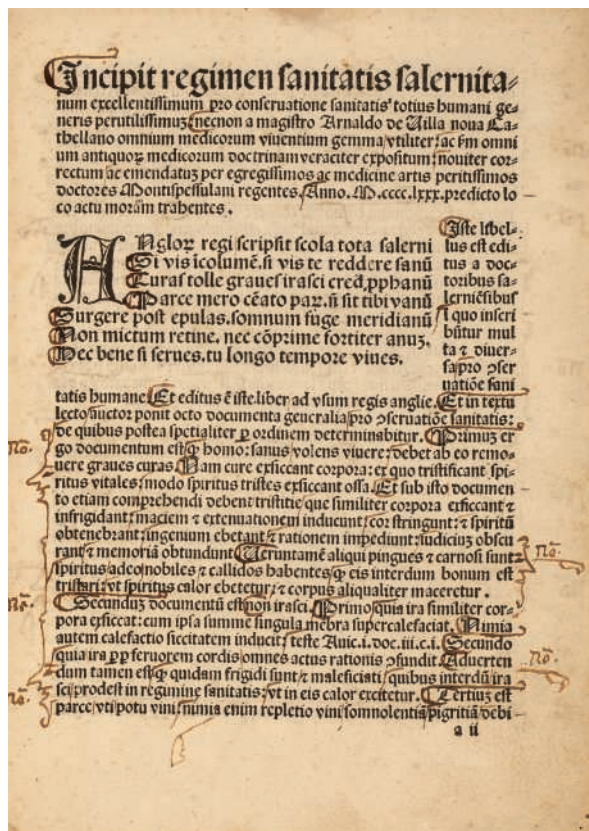 Incipit regimen sanitatis salernita⸗
num excellentissimum pro conseruatione sanitatis totius humani ge⸗
neris perutilissimuȝ necnon a magistro Arnaldo de Uilla noua Ca⸗
thellano omnium medicorum viuentium gemma vtiliter: ac ẜm omni
um antiquoꝝ medicorum doctrinam veraciter expositum: nouiter cor⸗
rectum ac emendatuȝ per egregissimos ac medicine artis peritissimos
doctores Montispessulani regentes. Anno. M.cccc.lxxx. predicto lo
co actu moram trahentes.
ANgloꝝ regi scripsit scola tota salerni
Si vis īcolumē. si vis te reddere sanū
Curas tolle graues irasci cred, ꝓphanū
Parce mero cēato paꝝ. ñ sit tibi vanū
Surgere post epulas. somnum fuge meridianū
Non mictum retine. nec cōprime fortiter anuȝ.
Nec bene si serues. tu longo tempore viues.
Iste libel⸗
lus est edi⸗
tus a doc⸗
toribus sa⸗
lerniēsibus
ī quo inscri
būtur mul
ta ⁊ diuer⸗
sa pro ꝯser
uatiōe sani
tatis humane. Et editus ē iste liber ad vsum regis anglie. Et in textu
lecto auctor ponit octo documenta generalia pro ꝯseruatiōe sanitatis:
de quibus postea specialiter ꝑ ordinem determinabitur. Primuȝ er
go documentum est ꝙ homo: sanus volens viuere: debet ab eo remo⸗
uere graues curas. Nam cure exsiccant corpora: ex quo tristificant spi⸗
ritus vitales: modo spiritus tristes exsiccant ossa. Et sub isto documen
to etiam comprehendi debent tristitie: que similiter corpora exsiccant ⁊
infrigidant: maciem ⁊ extenuationem inducunt: cor stringunt: ⁊ spiritū
obtenebrant: ingenium ebetant ⁊ rationem impediunt: iudicium obscu
rant ⁊ memoriā obtundunt. Ueruntamē aliqui pingues ⁊ carnosi sunt:
spiritus adeo nobiles ⁊ callidos habentes ꝙ eis interdum bonum est
tristari: vt spiritus calor ebetetur: ⁊ corpus aliqualiter maceretur.
Secunduȝ documentū est non irasci. Primo quia ira similiter cor⸗
pora exsiccat: cum ipsa summe singula mēbra supercalefaciat. Nimia
autem calefactio siccitatem inducit: teste Auic. i. doc. iii. c. i. Secundo
quia ira ꝓꝑ feruorem cordis omnes actus rationis ꝯfundit. Aduerten
dum tamen est ꝙ quidam frigidi sunt: ⁊ maleficiati: quibus interdū ira
sci prodest in regimine sanitatis: vt in eis calor excitetur. Tertiuȝ est
parce vti potu vini: nimia enim repletio vini somnolentiā pigritiā debi⸗
a ii